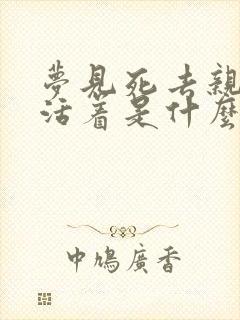 夢見死去親
活着是什麼
中鳩廣香